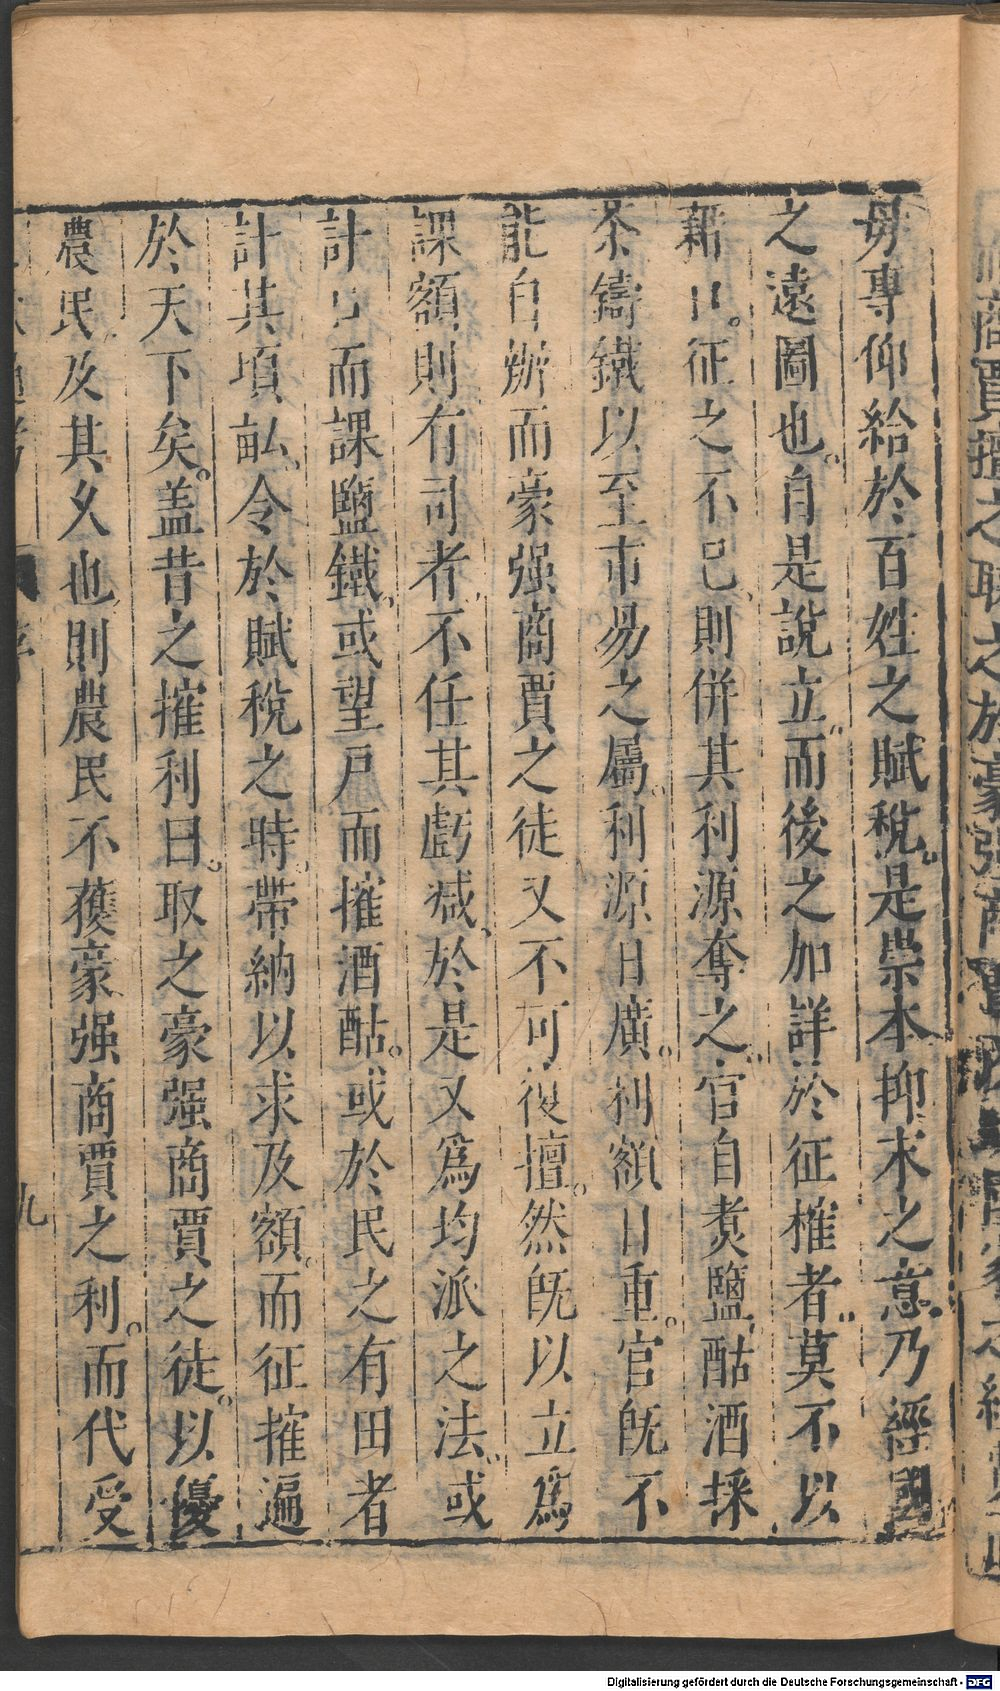 毋專仰給於百姓之賦稅是崇本抑末之意乃經國
之遠圖也自是說立而後之加詳於征榷者莫不以
藉口征之不已則併其利源奪之官自煑鹽酤酒採
茶鑄鐵以至市易之屬利源日廣利額日重官既不
能自辦而豪强商賈之徒又不可復擅然既以立爲
課額則有司者不任其虧减於是又爲均派之法或
計口而課鹽鐵或望戶而搉酒酤或於民之有田者
計其頃畝令於賦稅之時帶納以求及額而征搉遍
於天下矣盖昔之搉利曰取之豪强商賈之徒以優
農民及其久也則農民不獲豪强商賈之利而代受
九
Digitalisierung gefördert durch die Deutsche Forschungsgemeinschaft - DFG